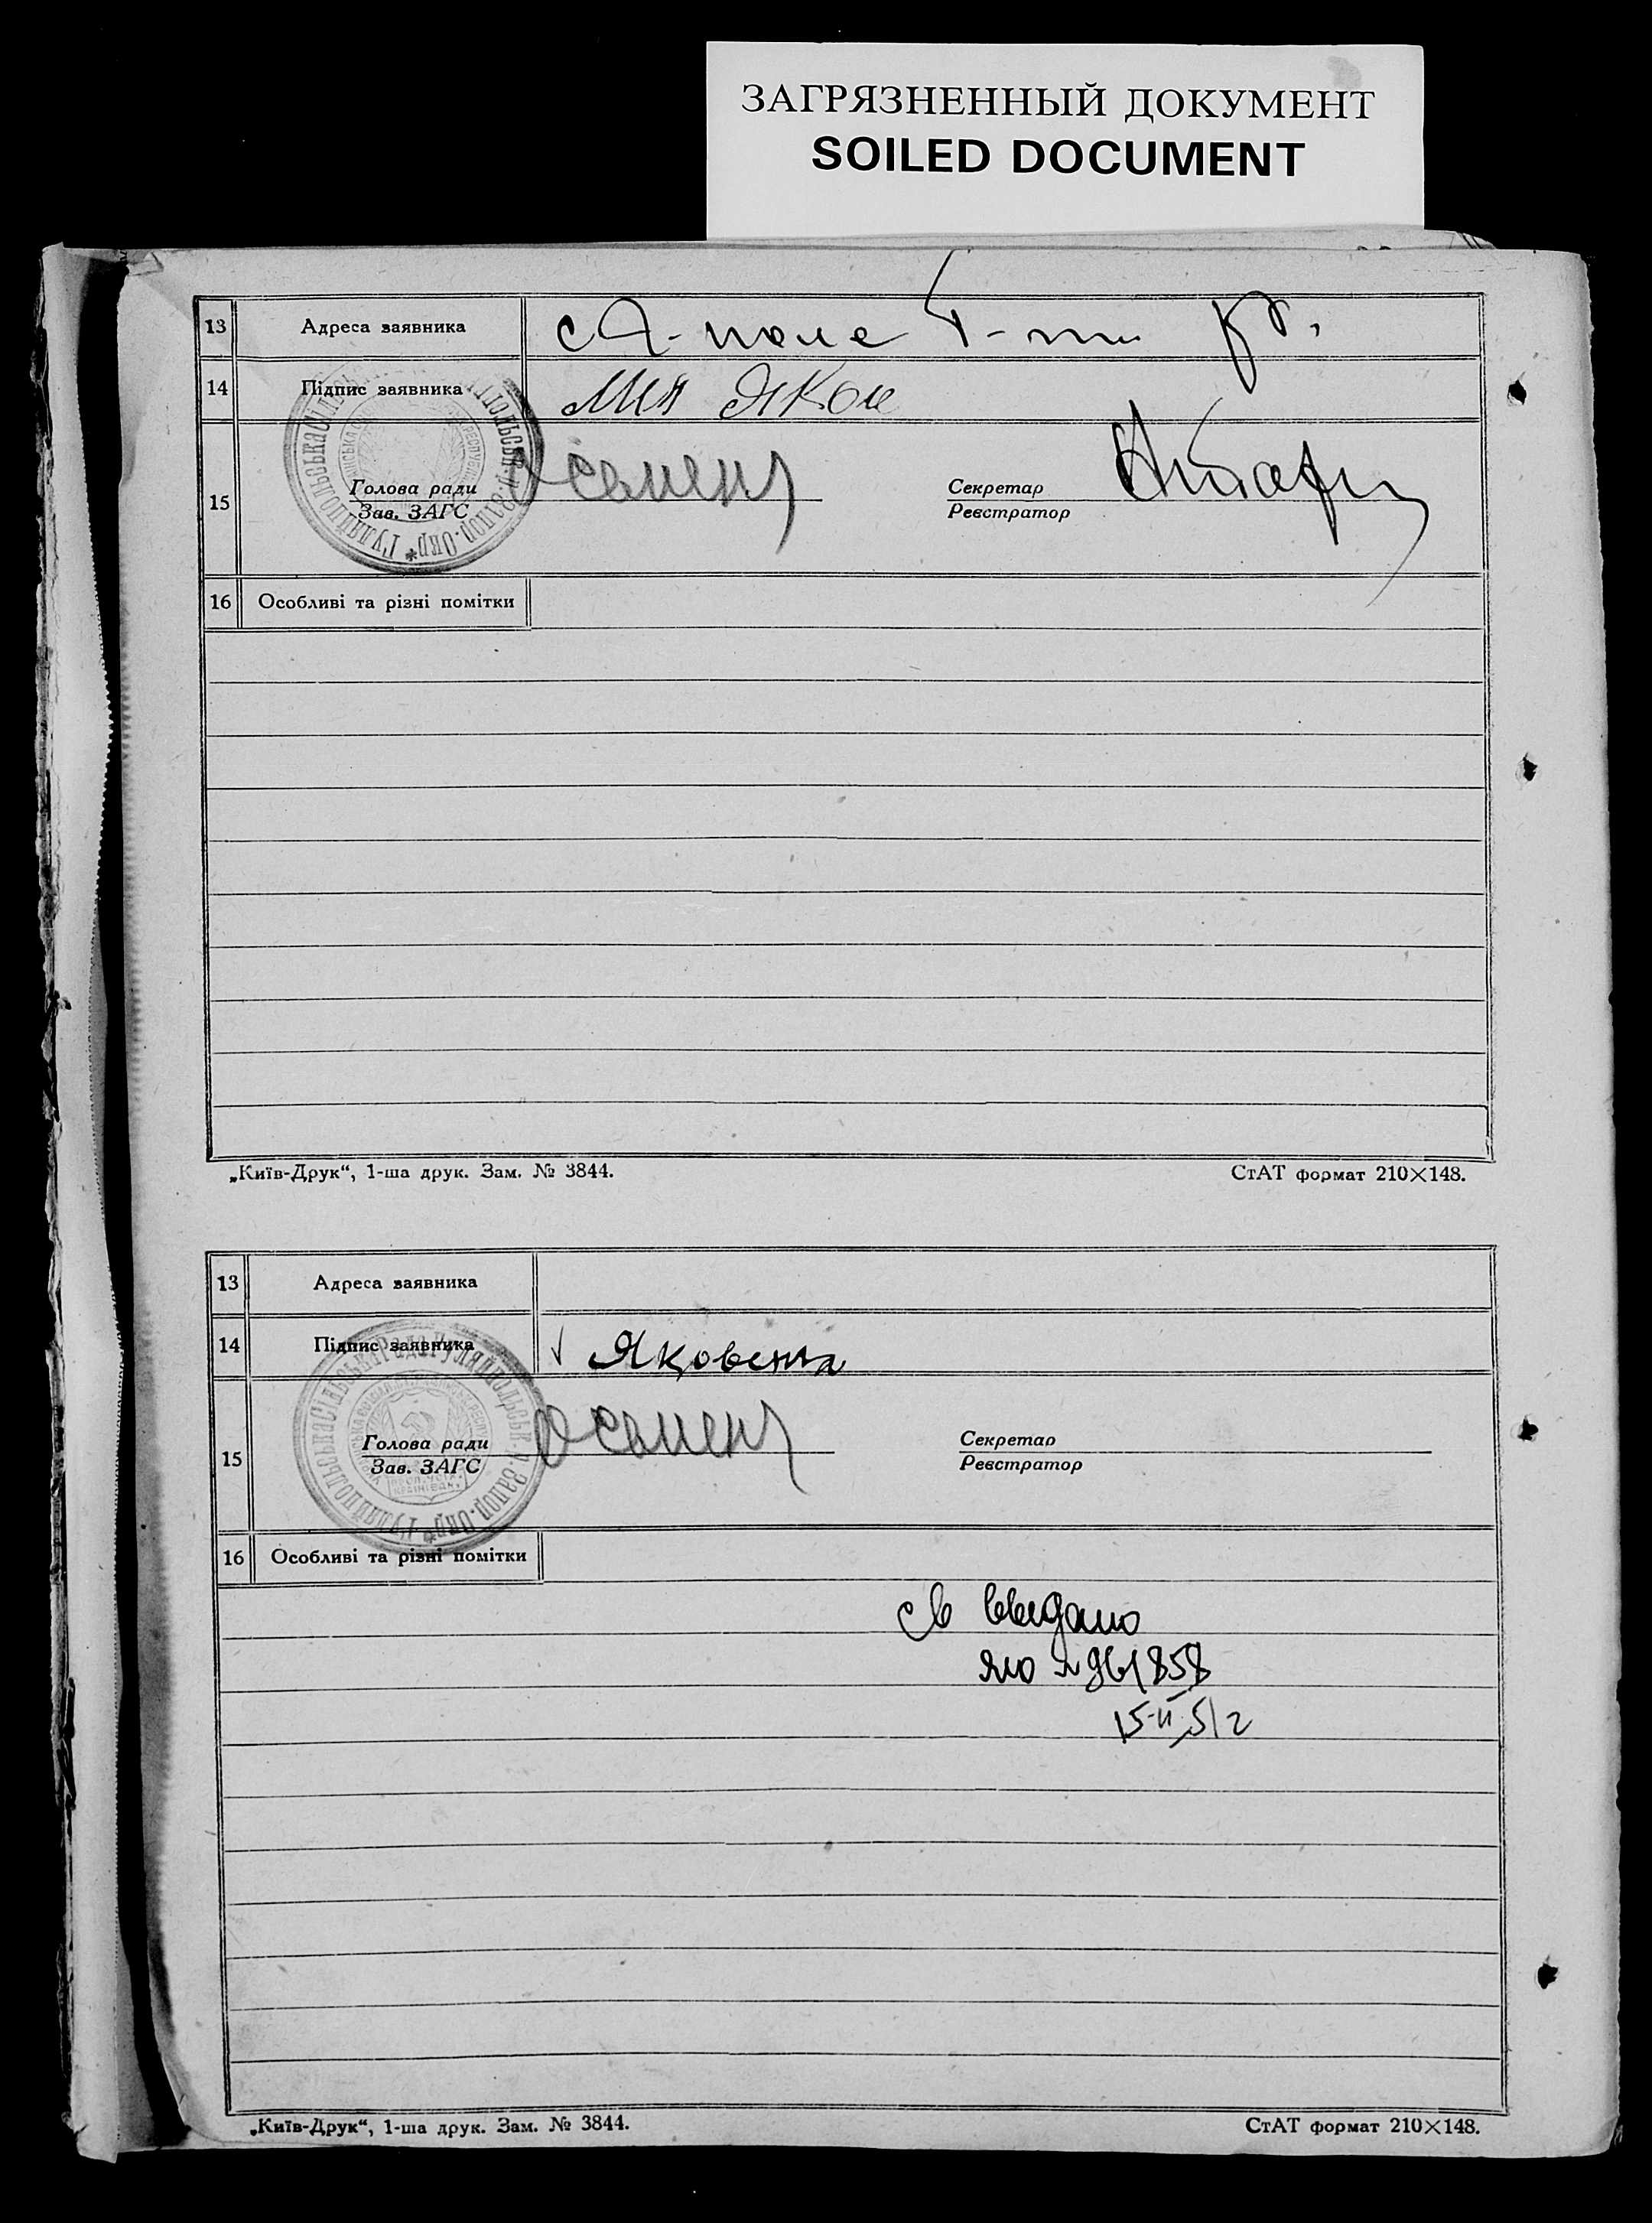 ЗАГРЯЗНЕННЫЙ ДОКУМЕНТ
SOILED DOCUMENT
13 Адреса заявника
14 Підпис заявника
15 Голова ради Секретар
Зав. ЗАГС Реєстратор
16 Особливі та різні помітки
„Київ-Друк“, 1-ша друк. Зам. № 3844. СтАТ формат 210×148.
13 Адреса заявника
14 Підпис заявника Яковенко
15 Голова ради Секретар
Зав. ЗАГС Реєстратор
16 Особливі та різні помітки
св выдано
ЯЮ № 961858
15-II 51 г
„Київ-Друк“, 1-ша друк. Зам. № 3844. СтАТ формат 210×148.